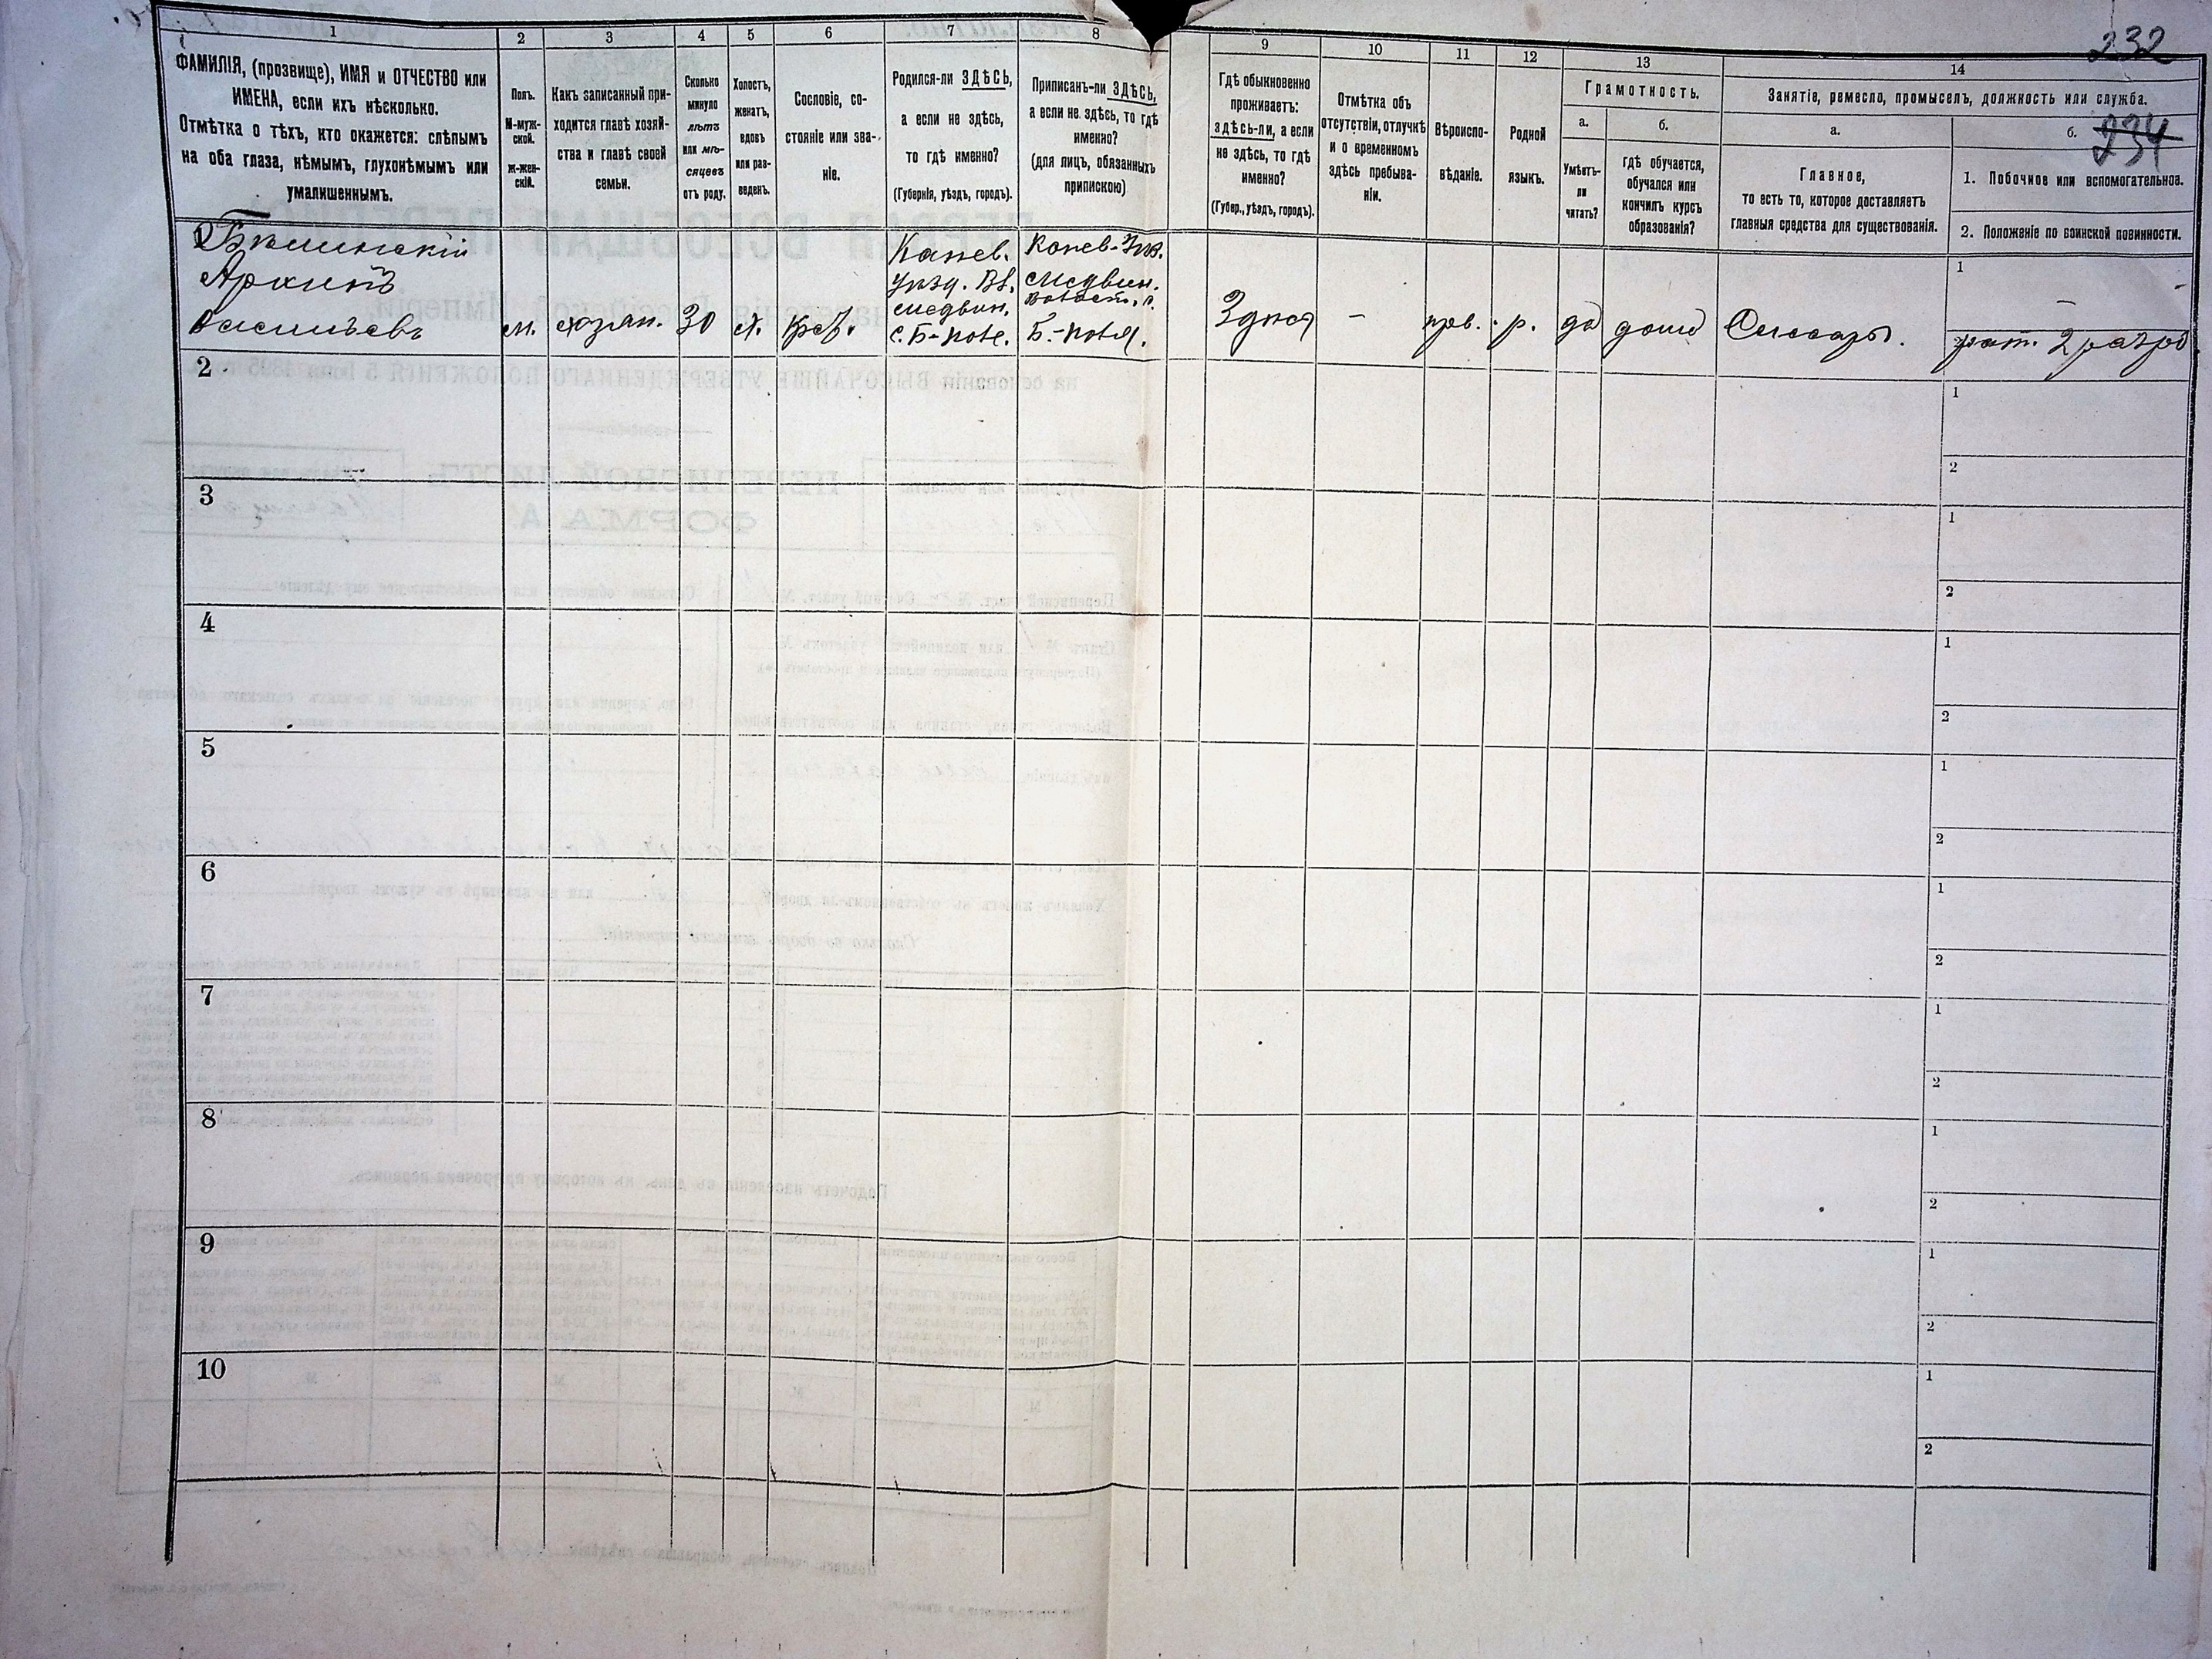 232
234
1
2
3
4
5
6
7
8
9
10
11
12
13
14
ФАМИЛІЯ, (прозвище), ИМЯ и ОТЧЕСТВО или
ИМЕНА, если ихъ нѣсколько.
Отмѣтка о тѣхъ, кто окажется: слѣпымъ
на оба глаза, нѣмымъ, глухонѣмымъ или
умалишеннымъ.
Полъ.
М-муж-
ской.
ж-жен-
скій.
Какъ записанный при-
ходится главѣ хозяй-
ства и главѣ своей
семьи.
Сколько
минуло
лѣтъ
или мѣ-
сяцевъ
отъ роду.
Холостъ,
женатъ,
вдовъ
или раз-
веденъ.
Сословіе, со-
стояніе или зва-
ніе.
Родился-ли ЗДѢСЬ,
а если не здѣсь,
то гдѣ именно?
(Губернія, уѣздъ, городъ).
Приписанъ-ли ЗДѢСЬ,
а если не здѣсь, то гдѣ
именно?
(для лицъ, обязанныхъ
припискою)
Гдѣ обыкновенно
проживаетъ:
здѣсь-ли, а если
не здѣсь, то гдѣ
именно?
(Губер., уѣздъ, городъ).
Отмѣтка объ
отсутствіи, отлучкѣ
и о временномъ
здѣсь пребыва-
ніи.
Вѣроиспо-
вѣданіе.
Родной
языкъ.
Грамотность.
а.
Умѣетъ-
ли
читать?
б.
гдѣ обучается,
обучался или
кончилъ курсъ
образованія?
Занятіе, ремесло, промыселъ, должность или служба.
а.
Главное,
то есть то, которое доставляетъ
главныя средства для существованія.
б.
1. Побочное или вспомогательное.
2. Положеніе по воинской повинности.
Архипъ
Васильевъ
м.
хозяин.
30
х.
Канев.
уѣзд.
медвин.
Канев. Уѣз.
Медвин.
волост.
Здѣсь
–
прв.
р.
да
дома
Слесарь.
1
–
рат. 2 разр
2
1
2
3
1
2
4
1
2
5
1
2
6
1
2
7
1
2
8
1
2
9
1
2
10
1
2